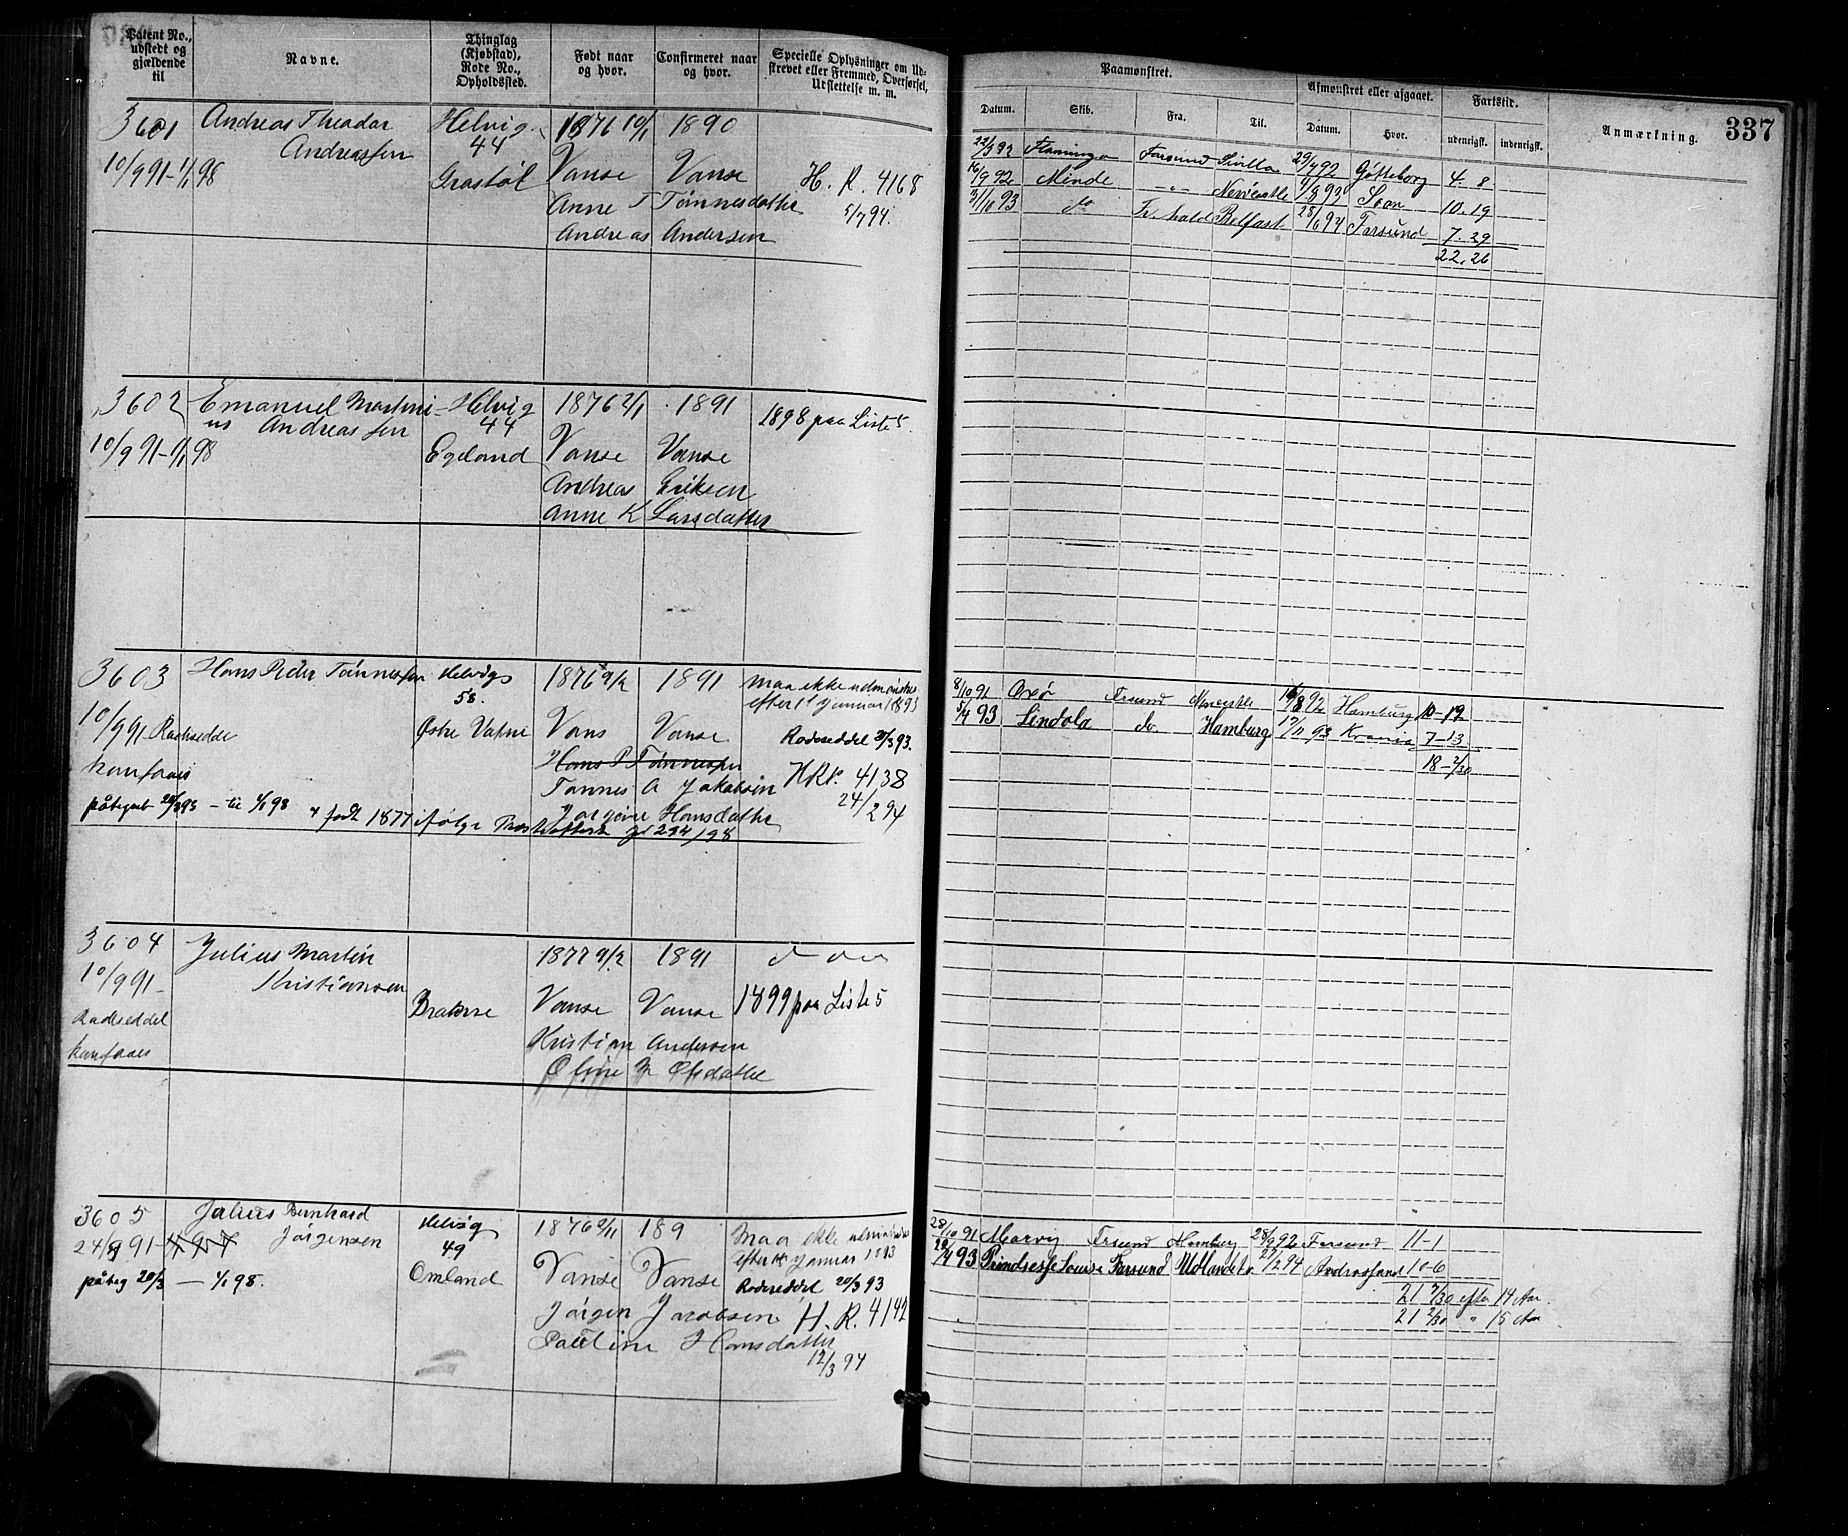 Patent No., udstedt og gjældende til
Navne.
Thinglag (Kjøbstad), Rode No., Opholdssted.
Født naar og hvor.
Confirmeret naar og hvor.
Specielle Oplysninger om Udstrevet eller Fremmed, Overførsel, Urslettelse m. m.
Paamønstret.
Afmønstret eller afgaaet.
Fartstir.
Anmærkning.
337
Datum. Skib. Fra. Til. Datum. Hvor. udenrigst. indenrigst.
3601 Andreas Theodor Helvig 1876 10/1 1890
Andreassen 44
10/9 91 - 1/1 98 Grastøl Vanse Vanse H. R. 4168
Anne T Tønnesdatter 5/7 94.
Andreas Andersen
22/3 92 Flamingo Farsund Sevilla 29/7 92 Gøtteborg 4. 8
16/9 92 Minde -"- Newcastle 4/8 93 Soon 10. 19
31/10 93 do Fr.hald Belfast 28/6 94 Farsund 7. 29
22. 26
3602 Emanuel Martini- Helvig 1876 2/1 1891 1898 paa Liste 5.
us Andreassen 44
10/9 91 - 1/1 98 Egeland Vanse Vanse
Andreas Eriksen
Anne K Larsdatter
3603 Hans Peder Tønnessen Helvigs 1876 9/2 1891 Maa ikke udmønstres
58. efter 1 Januar 1893
10/9 91 Radeseddel Østre Vatne Vans Vanse Rodeseddel 20/3 93.
Hans P Tønnessen
kun faaes Tønnes A Jakobsen HRP. 4138
påtegnet 20/3 93 - til 1/1 98 Jørgine Hansdatter 24/2 94
født 1877 ifølge
8/10 91 Oxø Farsund Newcastle 16/8 92 Hamburg 10-12
5/4 93 Lindola do. Hamburg 17/11 93 Krania 7-13
18-2/30
3604 Julius Martin 1877 9/2 1891
10/9 91 - Kristiansen
Radeseddel Brakne Vanse Vanse 1899 paa Liste 5
kun faaes Kristian Andersen
Oline M Olsdatter
3605 Julius Bernhard Helvig 1876 2/11 189 Maa ikke udmønstres
24/9 91 Jørgensen 49 efter Januar 1893
påteg 20/3 - 1/1 98. Omland Vanse Vanse Rodeseddel 20/3 93
Jørgen Jacobsen H. R. 4142
Pauline Hansdatter 12/3 94
28/10 91 Marvig Farsund Hamburg 28/9 92 Farsund 11-1
22/4 93 Prindsesse Louise Farsund Udlandet 27/2 94 10-6
21 7/30 efter 14 Aar.
21 2/30 " 15 Aar